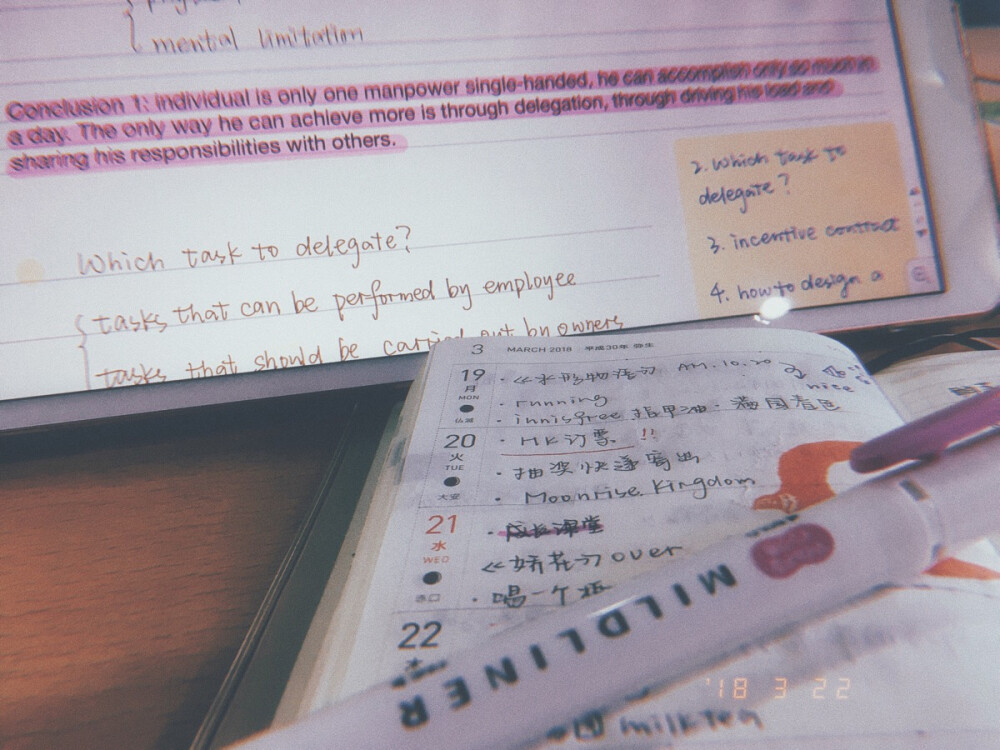 mental limitation
Conclusion 1: individual is only one manpower single-handed, he can accomplish only so much in
a day. The only way he can achieve more is through delegation, through driving his load and
sharing his responsibilities with others.
Which task to delegate?
tasks that can be performed by employee
tasks that should be carried out by owners
2. Which task to
delegate?
3. incentive contract
4. how to design a
3 MARCH 2018 平成30年 弥生
19 月 MON 仏滅
·《水形物语》 AM.10.20
nice
· running
· innisfree 指甲油·
20 火 TUE 大安
· HK订票 !!
· 抽奖快递寄出
· Moonrise Kingdom
21 水 WED 赤口
· 成长课堂
《娇花》over
· 喝一个
22
MILDLINER
'18 3 22
milk tea